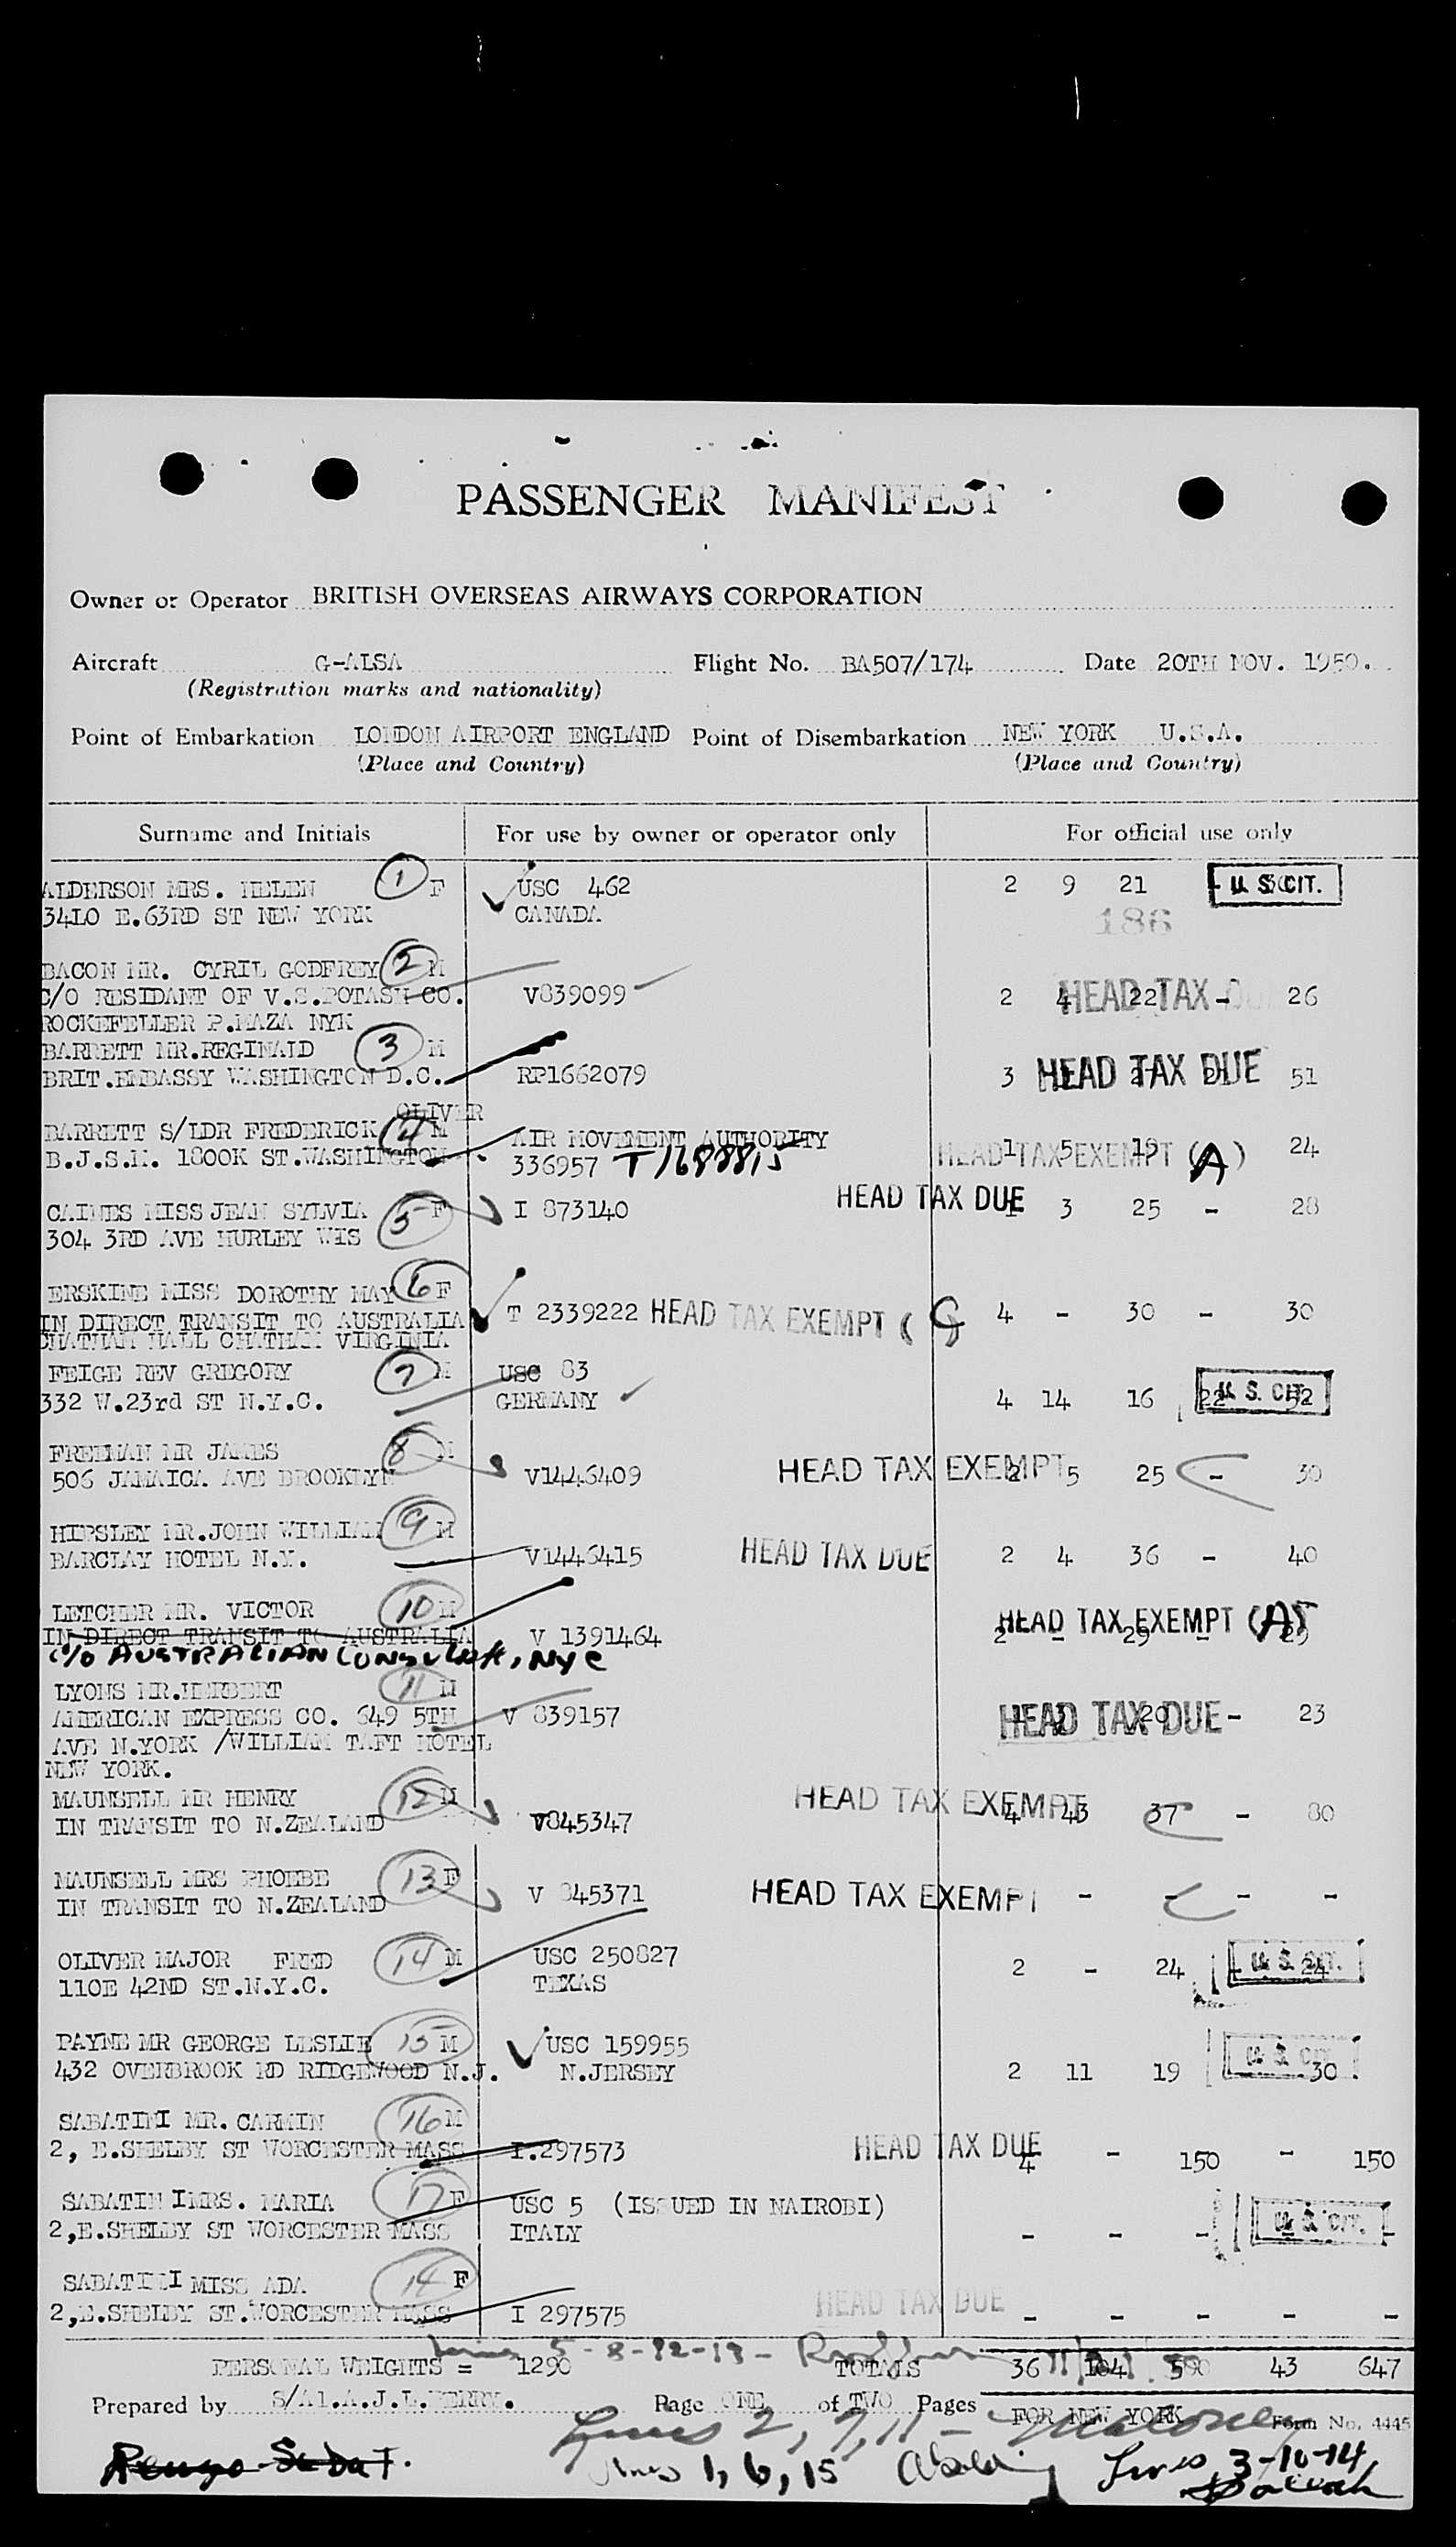 PASSENGER MANIFEST
Owner or Operator BRITISH OVERSEAS AIRWAYS CORPORATION
Aircraft G-ALSA Flight No. BA507/174 Date 20TH NOV. 1950.
(Registration marks and nationality)
Point of Embarkation LONDON AIRPORT ENGLAND Point of Disembarkation NEW YORK U.S.A.
(Place and Country) (Place and Country)
Surname and Initials For use by owner or operator only For official use only
ALDERSON MRS. HELEN 1 F USC 462 2 9 21 U. S. CIT.
3410 E.63RD ST NEW YORK CANADA
186
BACON MR. CYRIL GODFREY 2 M
C/O RESIDANT OF V.S.POTASH CO. V839099 2 4 22 - 26 HEAD TAX
ROCKEFELLER P.MAZA NYK
BARRETT MR.REGINALD 3 M
BRIT.EMBASSY WASHINGTON D.C. RP1662079 3 HEAD TAX DUE 51
OLIVER
BARRETT S/LDR FREDERICK 4 M AIR MOVEMENT AUTHORITY
B.J.S.M. 1800K ST.WASHINGTON 336957 T1688815 HEAD TAX EXEMPT (A) 1 5 19 24
CAINES MISS JEAN SYLVIA 5 F I 873140 HEAD TAX DUE 1 3 25 - 28
304 3RD AVE HURLEY WIS
ERSKINE MISS DOROTHY MAY 6 F
IN DIRECT TRANSIT TO AUSTRALIA T 2339222 HEAD TAX EXEMPT (G 4 - 30 - 30
CHATHAM HALL CHATHAM VIRGINIA
FEIGE REV GREGORY 7 M USC 83
332 W.23rd ST N.Y.C. GERMANY 4 14 16 22 52 U. S. CIT.
FREEMAN MR JAMES 8 M
506 JAMAICA AVE BROOKLYN V1446409 HEAD TAX EXEMPT 2 5 25 - 30
HIPSLEY MR.JOHN WILLIAM 9 M
BARCLAY HOTEL N.Y. V1446415 HEAD TAX DUE 2 4 36 - 40
LETCHER MR. VICTOR 10 M
IN DIRECT TRANSIT TO AUSTRALIA V 1391464 HEAD TAX EXEMPT (A) 2 - 29 - 29
c/o AUSTRALIAN CONSULATE, NYC
LYONS MR.HERBERT 11 M
AMERICAN EXPRESS CO. 649 5TH V 839157 HEAD TAX DUE 20 - 23
AVE N.YORK /WILLIAM TAFT HOTEL
NEW YORK.
MAUNSELL MR HENRY 12 M
IN TRANSIT TO N.ZEALAND V845347 HEAD TAX EXEMPT 4 43 37 - 80
MAUNSELL MRS PHOEBE 13 F
IN TRANSIT TO N.ZEALAND V 845371 HEAD TAX EXEMPT - - - -
OLIVER MAJOR FRED 14 M USC 250827
110E 42ND ST.N.Y.C. TEXAS 2 - 24 - 24 U. S. CIT.
PAYNE MR GEORGE LESLIE 15 M USC 159955
432 OVERBROOK RD RIDGEWOOD N.J. N.JERSEY 2 11 19 30 U. S. CIT.
SABATINI MR. CARMIN 16 M
2, E.SHELBY ST WORCESTER MASS I.297573 HEAD TAX DUE 4 - 150 - 150
SABATINI MRS. MARIA 17 F USC 5 (ISSUED IN NAIROBI)
2,E.SHELBY ST WORCESTER MASS ITALY - - - - - U. S. CIT.
SABATINI MISS ADA 14 F
2,E.SHELBY ST.WORCESTER MASS I 297575 HEAD TAX DUE - - - - -
Lines 5-8-12-13-
PERSONAL WEIGHTS = 1290 TOTALS 36 104 590 43 647
Prepared by S/A1.A.J.L.PERRY. Page ONE of TWO Pages FOR NEW YORK Form No. 4445
Lines 2, 7, 11 -
Lines 1, 6, 15 Lines 3-10-14